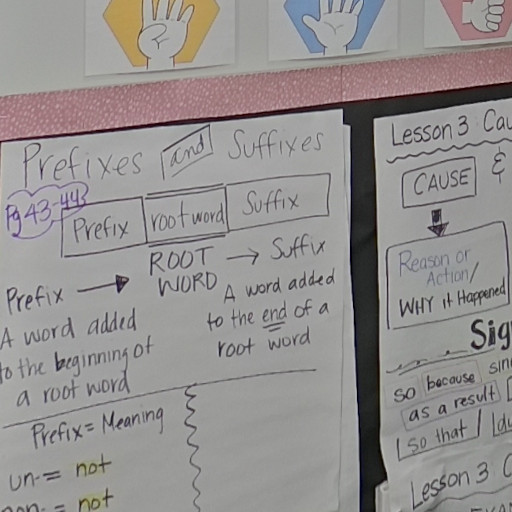 Prefixes and Suffixes
Pg 43-44
Prefix root word Suffix
Prefix → ROOT WORD → Suffix
A word added
to the beginning of
a root word
A word added
to the end of a
root word
Prefix = Meaning
un- = not
non- = not
Lesson 3: Cau
CAUSE &
Reason or
Action/
WHY it Happened
Sig
so because sin
as a result
so that
Lesson 3